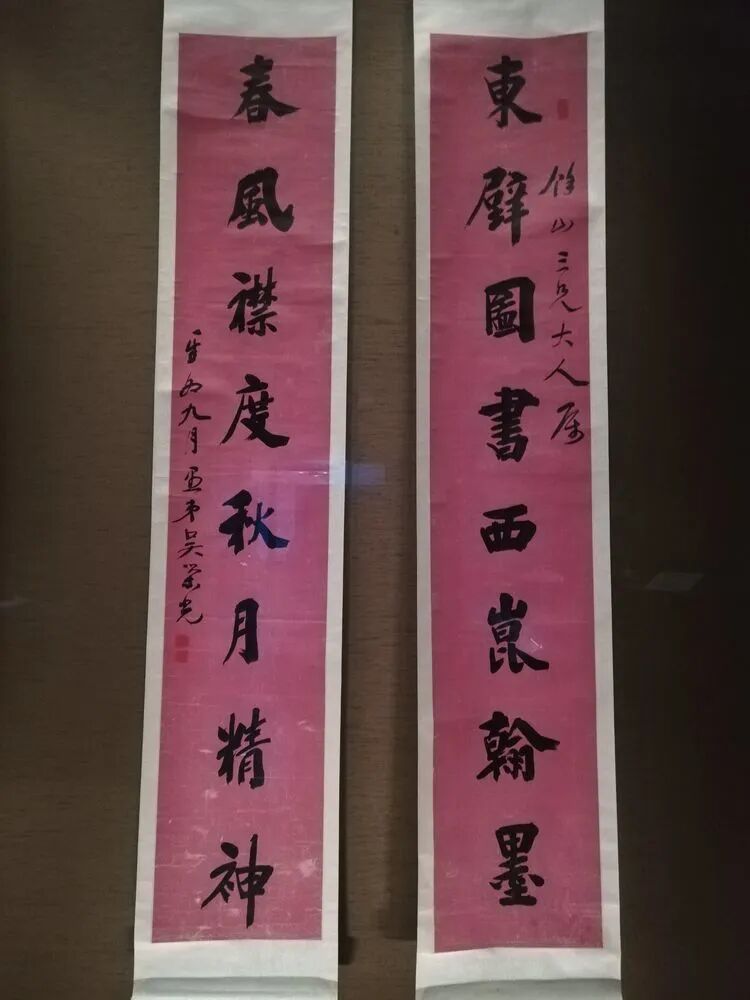 東壁圖書西崑翰墨
山三兄大人属
春風襟度秋月精神
九月愚弟吳榮光